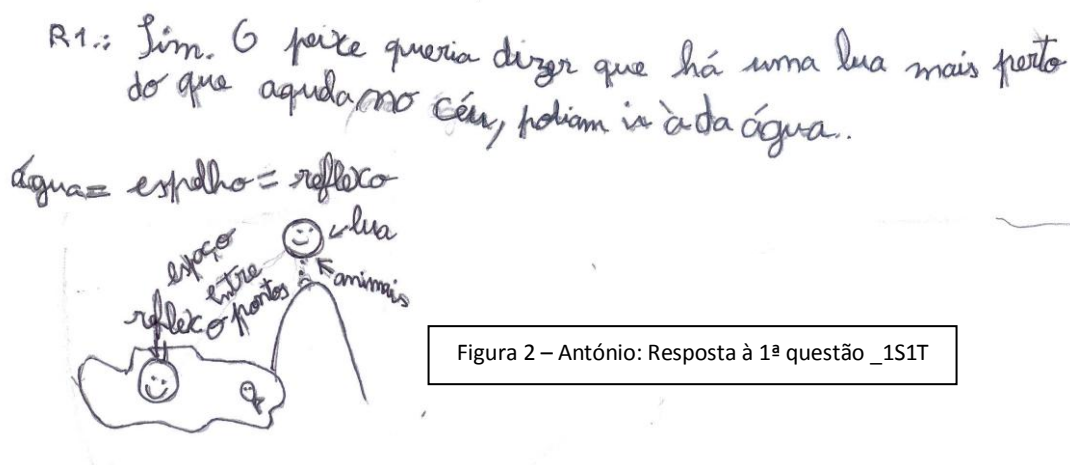 R1.: Sim. O peixe queria dizer que há uma lua mais perto
do que aquela no céu, podiam ir à da água..
água = espelho = reflexo
lua
espaço
entre
pontos
animais
reflexo
Figura 2 – António: Resposta à 1ª questão _1S1T